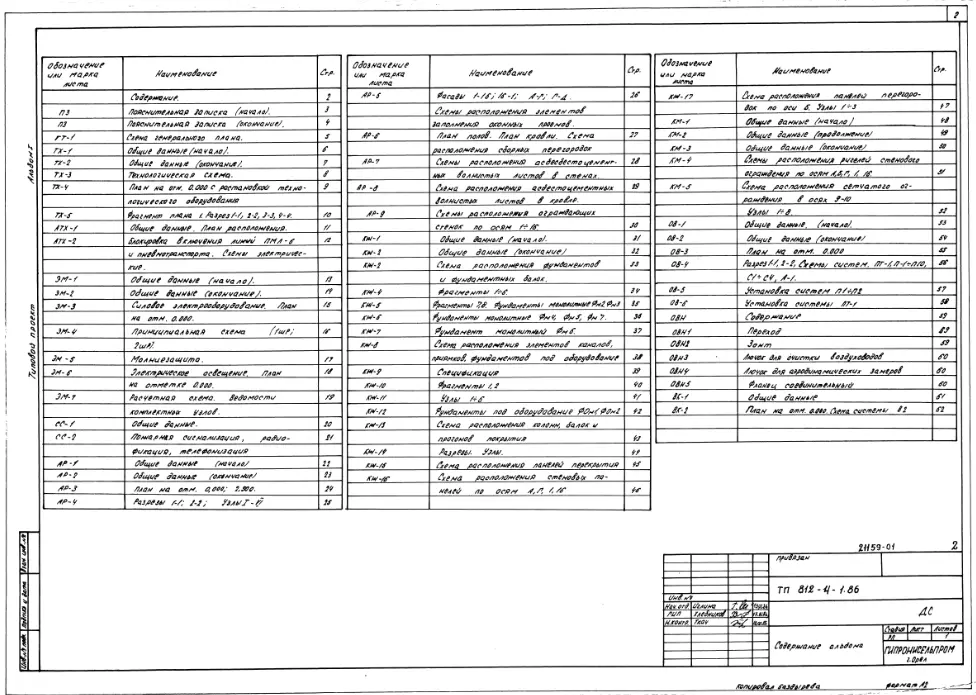 2
Обозначение или марка листа Наименование Стр.
Содержание. 2
ПЗ Пояснительная записка (начало). 3
ПЗ Пояснительная записка (окончание). 4
ГТ-1 Схема генерального плана. 5
ТХ-1 Общие данные (начало). 6
ТХ-2 Общие данные (окончание). 7
ТХ-3 Технологическая схема. 8
ТХ-4 План на отм. 0.000 с расстановкой техно- 9
логического оборудования
ТХ-5 Фрагмент плана 1. Разрез 1-1, 2-2, 3-3, 4-4. 10
АТХ-1 Общие данные. План расположения. 11
АТХ-2 Блокировка включения линий ПМЛ-6 12
и пневмотранспорта. Схемы электричес-
кие.
ЭМ-1 Общие данные (начало). 13
ЭМ-2 Общие данные (окончание). 14
ЭМ-3 Силовое электрооборудование. План 15
на отм. 0.000.
ЭМ-4 Принципиальная схема (1шр; 16
2шр).
ЭМ-5 Молниезащита. 17
ЭМ-6 Электрическое освещение. План 18
на отметке 0.000.
ЭМ-7 Расчетная схема. Ведомости 19
комплектных узлов.
СС-1 Общие данные. 20
СС-2 Пожарная сигнализация, радио- 21
фикация, телефонизация
АР-1 Общие данные (начало) 22
АР-2 Общие данные (окончание) 23
АР-3 План на отм. 0,000; 2.900. 24
АР-4 Разрезы 1-1; 2-2; Узлы I-VI 25
Обозначение или марка листа Наименование Стр.
АР-5 Фасады 1-16; 16-1; А-Г; Г-А 26
Схемы расположения элементов
заполнения оконных проемов.
АР-6 План полов. План кровли. Схема 27
расположения сборных перегородок
АР-7 Схемы расположения асбестоцемент- 28
ных волнистых листов в стенах.
АР-8 Схема расположения асбестоцементных 29
волнистых листов в кровле.
АР-9 Схемы расположения ограждающих
стенок по осям 1÷16 30
КЖ-1 Общие данные (начало). 31
КЖ-2 Общие данные (окончание) 32
КЖ-3 Схема расположения фундаментов 33
и фундаментных балок.
КЖ-4 Фрагменты 1÷6. 34
КЖ-5 Фрагменты 7,8. Фундаменты монолитные Фм2, Фм3 35
КЖ-6 Фундаменты монолитные Фм4, Фм5, Фм7. 36
КЖ-7 Фундамент монолитный Фм6. 37
КЖ-8 Схема расположения элементов каналов,
приямков, фундаментов под оборудование 38
КЖ-9 Спецификация 39
КЖ-10 Фрагменты 1,2 40
КЖ-11 Узлы 1÷6 41
КЖ-12 Фундаменты под оборудование ФОм1 ФОм2 42
КЖ-13 Схема расположения колонн, балок и
прогонов покрытия 43
КЖ-14 Разрезы. Узлы. 44
КЖ-15 Схема расположения панелей перекрытия 45
КЖ-16 Схема расположения стеновых па-
нелей по осям А, Г, 1, 16 46
Обозначение или марка листа Наименование Стр.
КЖ-17 Схема расположения панелей перегоро-
док по оси 6. Узлы 1÷3 47
КМ-1 Общие данные (начало) 48
КМ-2 Общие данные (продолжение) 49
КМ-3 Общие данные (окончание) 50
КМ-4 Схемы расположения ригелей стенового 51
ограждения по осям А, Б, Г, 1, 16
КМ-5 Схема расположения сетчатого ог-
раждения в осях 9-10
Узлы 1÷8. 52
ОВ-1 Общие данные, (начало) 53
ОВ-2 Общие данные (окончание) 54
ОВ-3 План на отм. 0.000 55
ОВ-4 Разрез 1-1, 2-2, Схемы систем. 56
С1÷С4, А-1.
ОВ-5 Установка систем П1÷П2 57
ОВ-6 Установка системы 58
ОВН Содержание 59
ОВН1 Переход 59
ОВН2 Зонт 59
ОВН3 Лючок для очистки воздуховодов 60
ОВН4 Лючок для аэродинамических замеров 60
ОВН5 Фланец соединительный 60
ВК-1 Общие данные 61
ВК-2 План на отм. 0.000. Схема системы В2 62
Альбом I
Типовой проект
Инв.№ подл. Подпись и дата Взам. инв.№
21159-01 2
Привязан
Инв №
ТП 812-4-1.86
ДС
Нач.отд.
ГИП
Н.контр. Ткач
Содержание альбома
Стадия Лист Листов
РП 1
ГИПРОНИСЕЛЬПРОМ
г. Орел
Копировал Формат А2